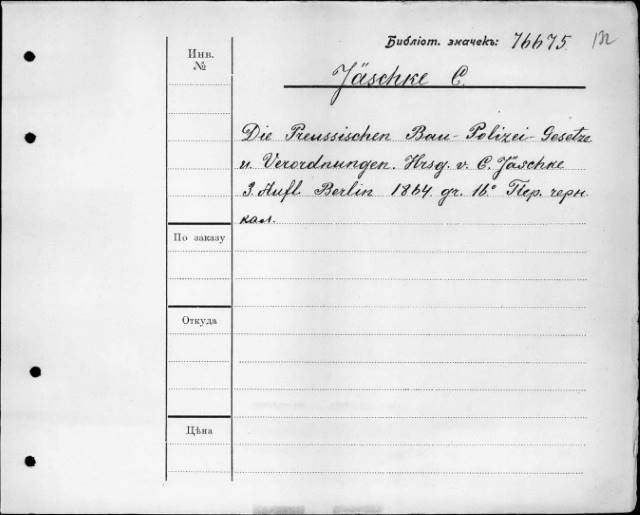 Библіот. значекъ: 76675.
Инв.
№
Jäschke C.
Die Preussischen Bau-Polizei-Gesetze
u. Verordnungen. Hrsg. v. C. Jäschke
3. Aufl. Berlin 1864. gr. 16° Пер. черн.
кал.
По заказу
Откуда
Цѣна